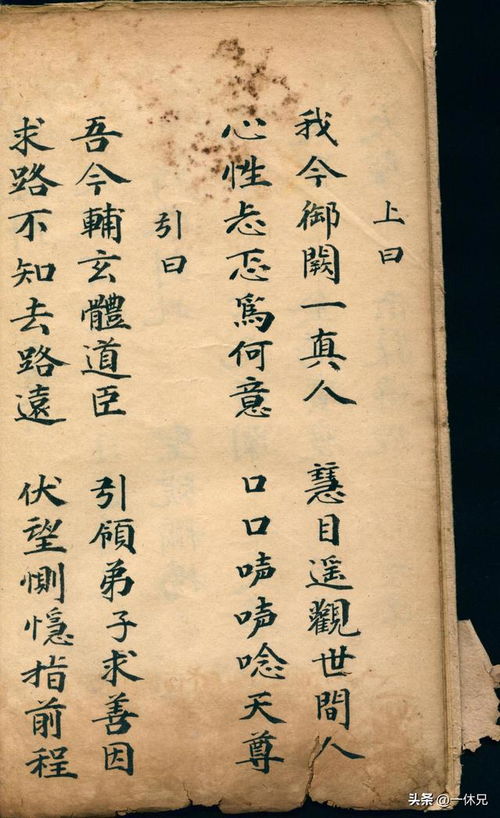 上曰
我今御闕一真人 慧目遥觀世間人
心性忐忑爲何意 口口啨啨唸天尊
引曰
吾今輔玄體道臣 引領弟子求善因
求路不知去路遠 伏望惻隱指前程
头条 @一休兄